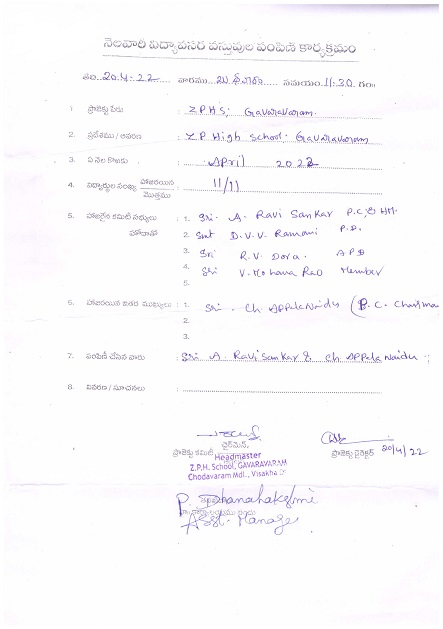 నెలవారీ విద్యావసర వస్తువుల పంపిణీ కార్యక్రమం
తేది 20.4.22 వారము బుధవారం సమయం 11.30 గం॥
1. ప్రాజెక్టు పేరు : Z.P.H.S; Gavaravaram.
2. ప్రదేశము / ఆవరణ : Z.P High School. Gavaravaram
3. ఏ నెల కొఱకు : April 2022
4. విద్యార్థుల సంఖ్య హాజరయిన 11/11
మొత్తము
5. హాజరైన కమిటీ సభ్యులు : 1. Sri. A. Ravi Sankar P.C. & HM.
హోదాతో 2. Smt D.V.V. Ramani P.D.
3. Sri R.V. Dora. APD
4. Sri V. Mohana Rao Member
5.
6. హాజరయిన ఇతర ముఖ్యులు : 1. Sri. Ch Appala Naidu (P.C. Chairma
2.
3.
7. పంపిణీ చేసిన వారు : Sri A. Ravi Sankar & Ch Appala Naidu
8. వివరణ / సూచనలు :
చైర్‌మెన్,
ప్రాజెక్టు కమిటీ ప్రాజెక్టు డైరెక్టర్ 20/4/22
Headmaster
Z.P.H. School, GAVARAVARAM
Chodavaram Mdl., Visakha
P. Dhanalakshmi
Asst. Manager